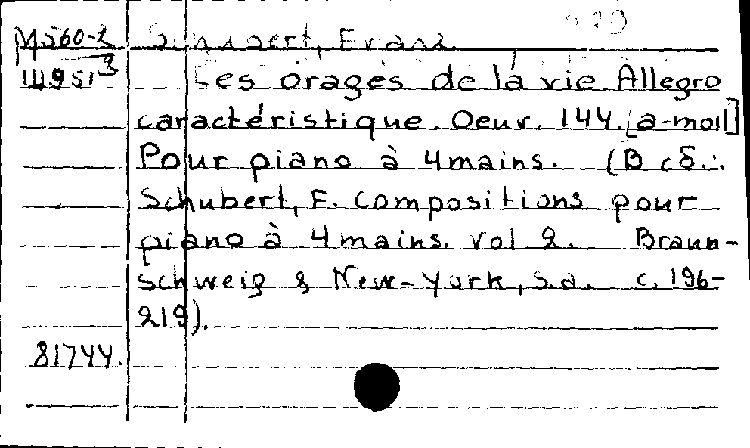 М560-2 Schubert, Franz
Ш951³ Les orages de la vie Allegro
caractéristique. Oeuv. 144. [a-moll]
Pour piano à 4 mains. (В сб.:
Schubert, F. Compositions pour
piano à 4 mains. Vol 2. Braun-
schweig & New-York, s.a. с. 196-
219).
81744.